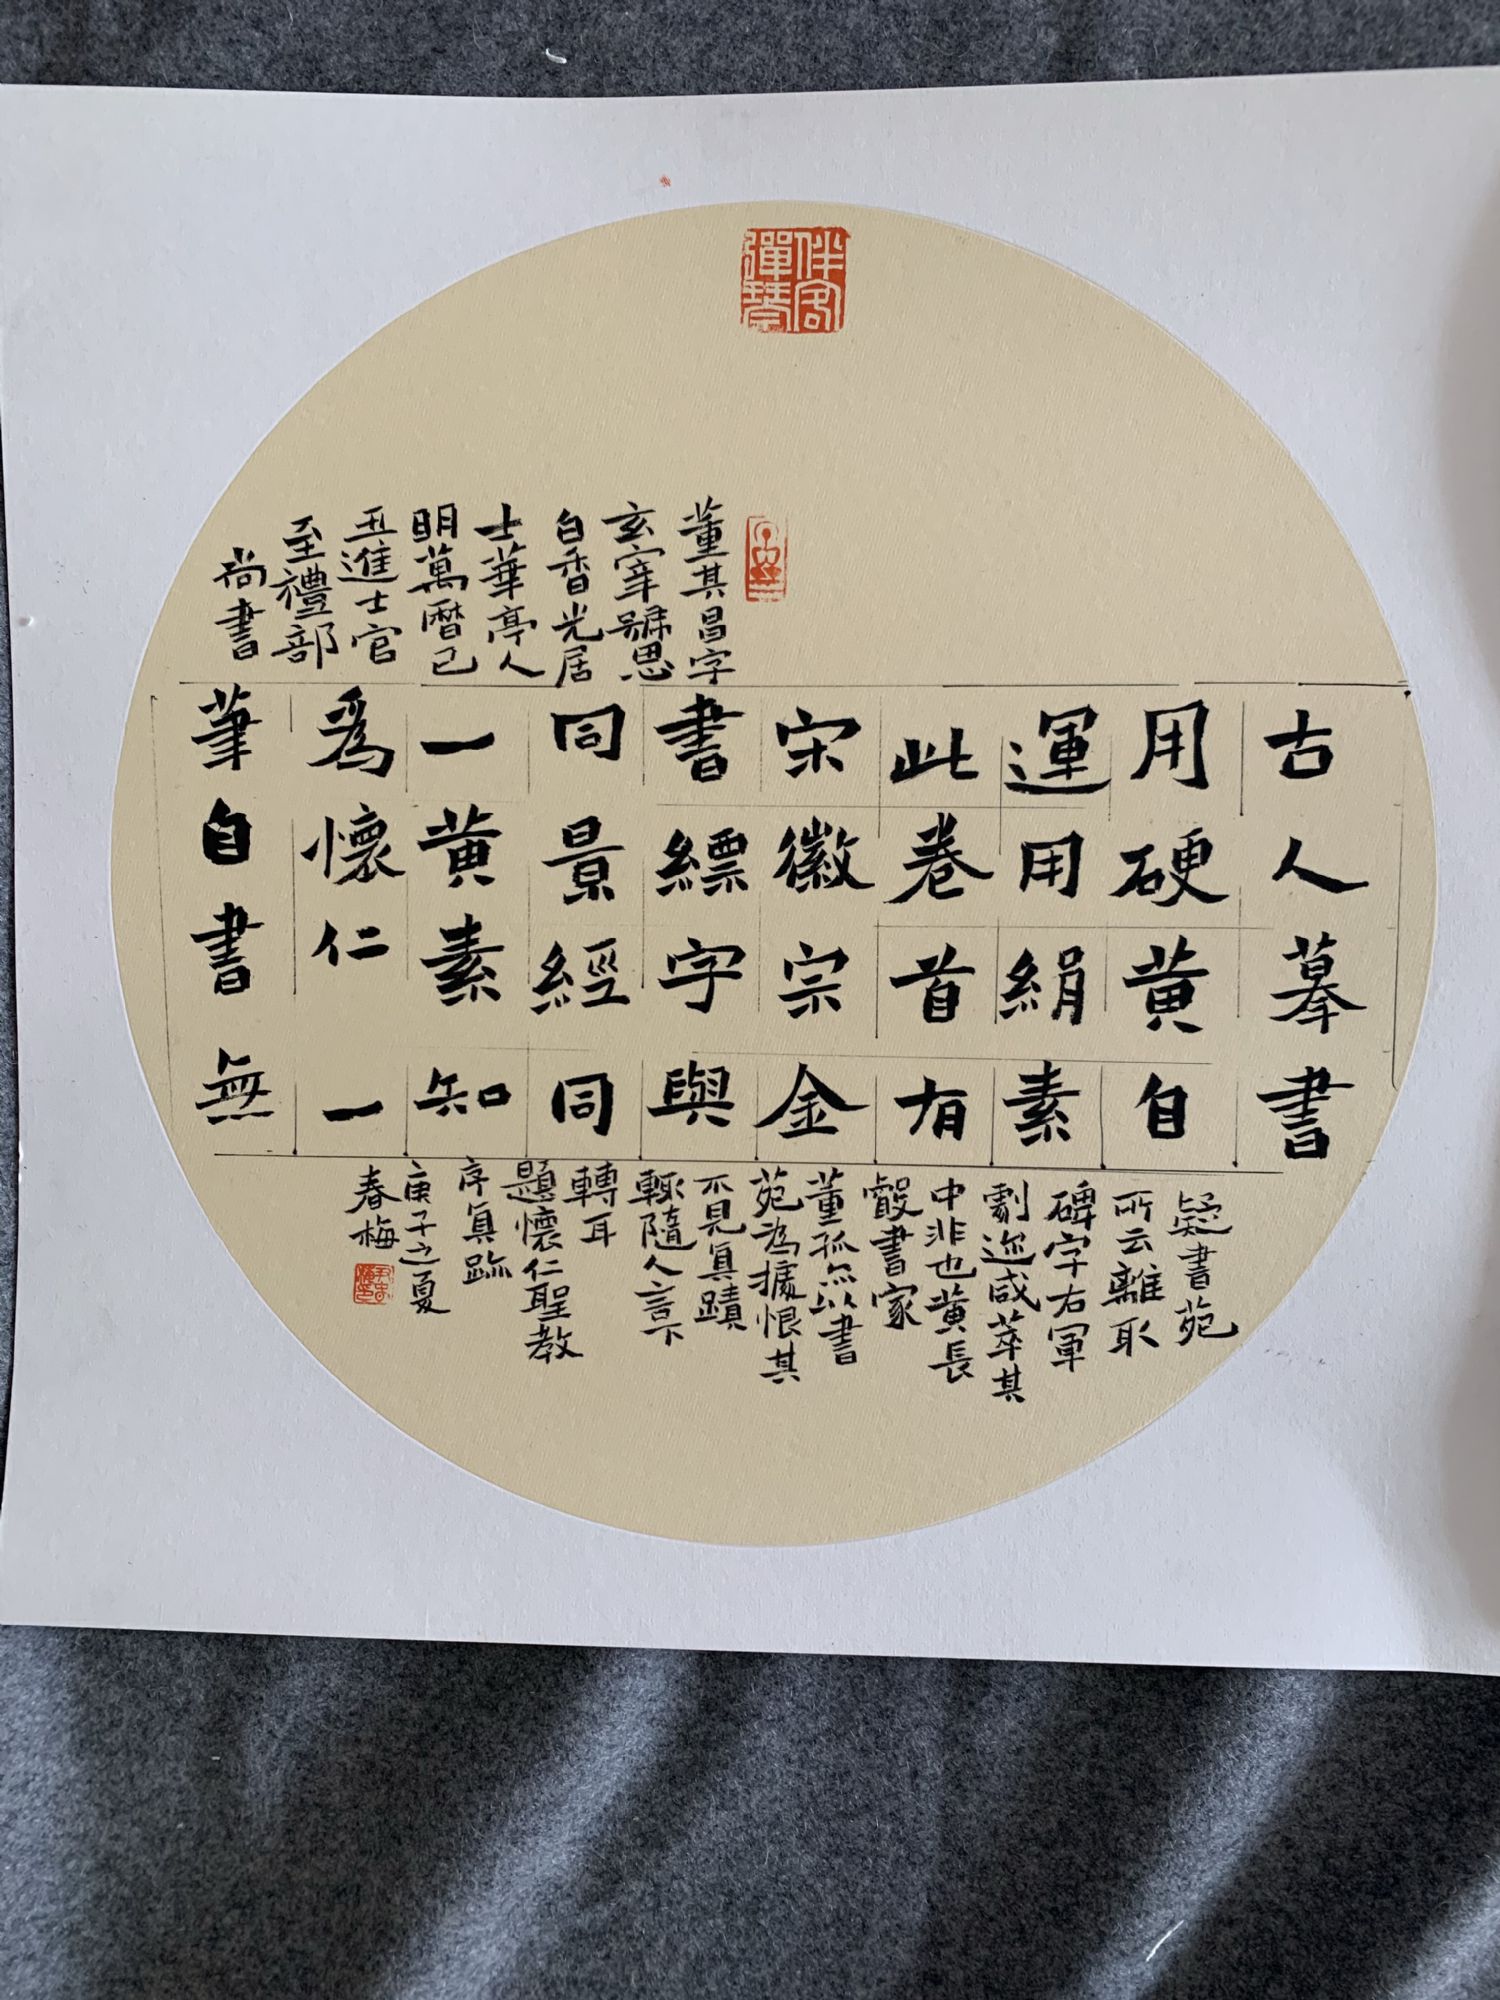 伴客
彈琴
董其昌字
玄宰號思
白香光居
士華亭人
明萬曆己
丑進士官
至禮部
尚書
古人摹書
用硬黃自
運用絹素
此卷首有
宋徽宗金
書縹字與
同景經同
一黃素知
為懷仁一
筆自書無
疑書苑
所云離取
碑字右軍
劇迹咸萃其
中非也黃長
睿書家
董孤亦以書
苑為據恨其
不見真蹟
輒隨人言下
轉耳
題懷仁聖教
序真跡
庚子之夏
春梅